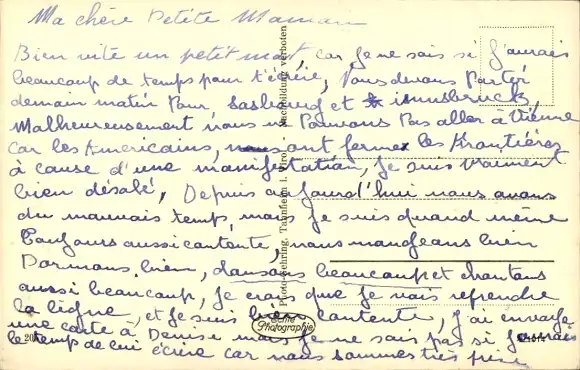 Ma chère Petite Maman
Bien vite un petit mot, car je ne sais si j'aurais
beaucoup de temps pour t'écrire, Nous devons Partir
demain matin Pour Salsbourg et innsbruck,
Malheureusement nous ne Pouvons Pas aller à Vienne
car les Américains, nous ont fermer les Frontières
à cause d'une manifestation, je suis vraiment
bien désolé, Depuis aujourd'hui nous avons
du mauvais temps, mais je suis quand même
Toujours aussi contente, nous mangeons bien
Dormons bien, dansons beaucoup et chantons
aussi beaucoup, je crois que je vais reprendre
la ligne, et je suis bien contente, j'ai envoyé
une carte à Denise mais je ne sais pas si j'aurais
le temps de lui écrire car nous sommes très
Photo-Gehring, Tannheim i. Tirol Nachbildung verboten
Echte
Photographie